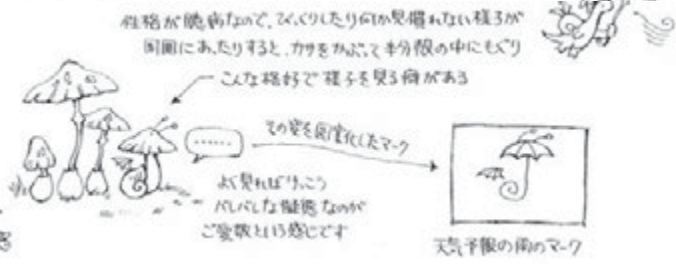 性格が臆病なので、びっくりしたり何か見慣れない様子が
周囲にあったりすると、カサをかぶって半分殻の中にもぐり
こんな格好で様子を見る癖がある
......
その姿を図案化したマーク
よく見ればけっこう
バレバレな擬態なのが
ご愛敬という感じです
天気予報の雨のマーク